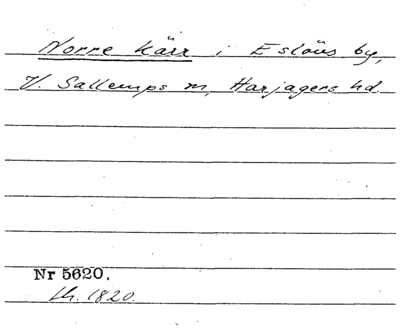 Norre Kärr i Eslövs by,
V. Sallerups m, Harjagers hd.
Nr 5620.
th. 1820.